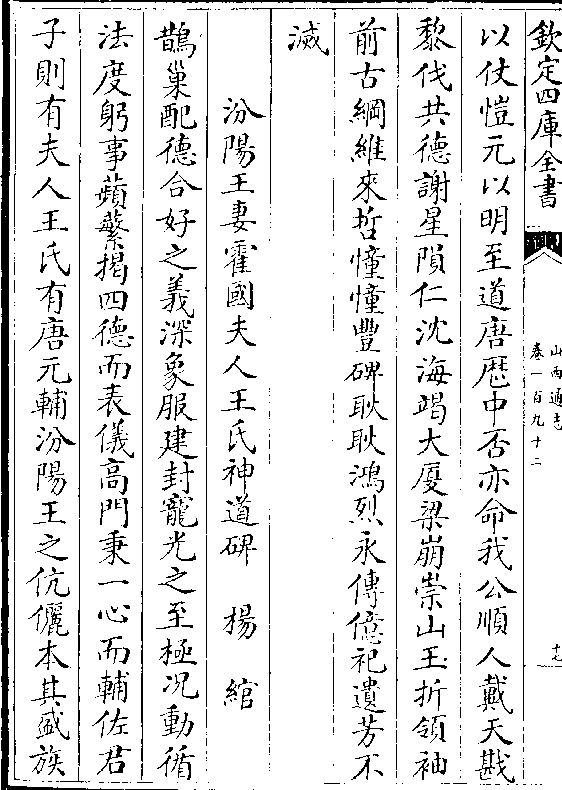 欽定四庫全書
山西通志
卷一百九十二
十七
以仗愷元以明至道唐歴中否亦命我公順人戴天戡
黎伐共德謝星隕仁沈海竭大厦梁崩崇山玉折領袖
前古綱維來哲憧憧豐碑耿耿鴻烈永傳億祀遺芳不
滅
汾陽王妻霍國夫人王氏神道碑 楊綰
鵲巢配德合好之義深象服建封寵光之至極况動循
法度躬事蘋蘩揭四德而表儀高門秉一心而輔佐君
子則有夫人王氏有唐元輔汾陽王之伉儷本其盛族